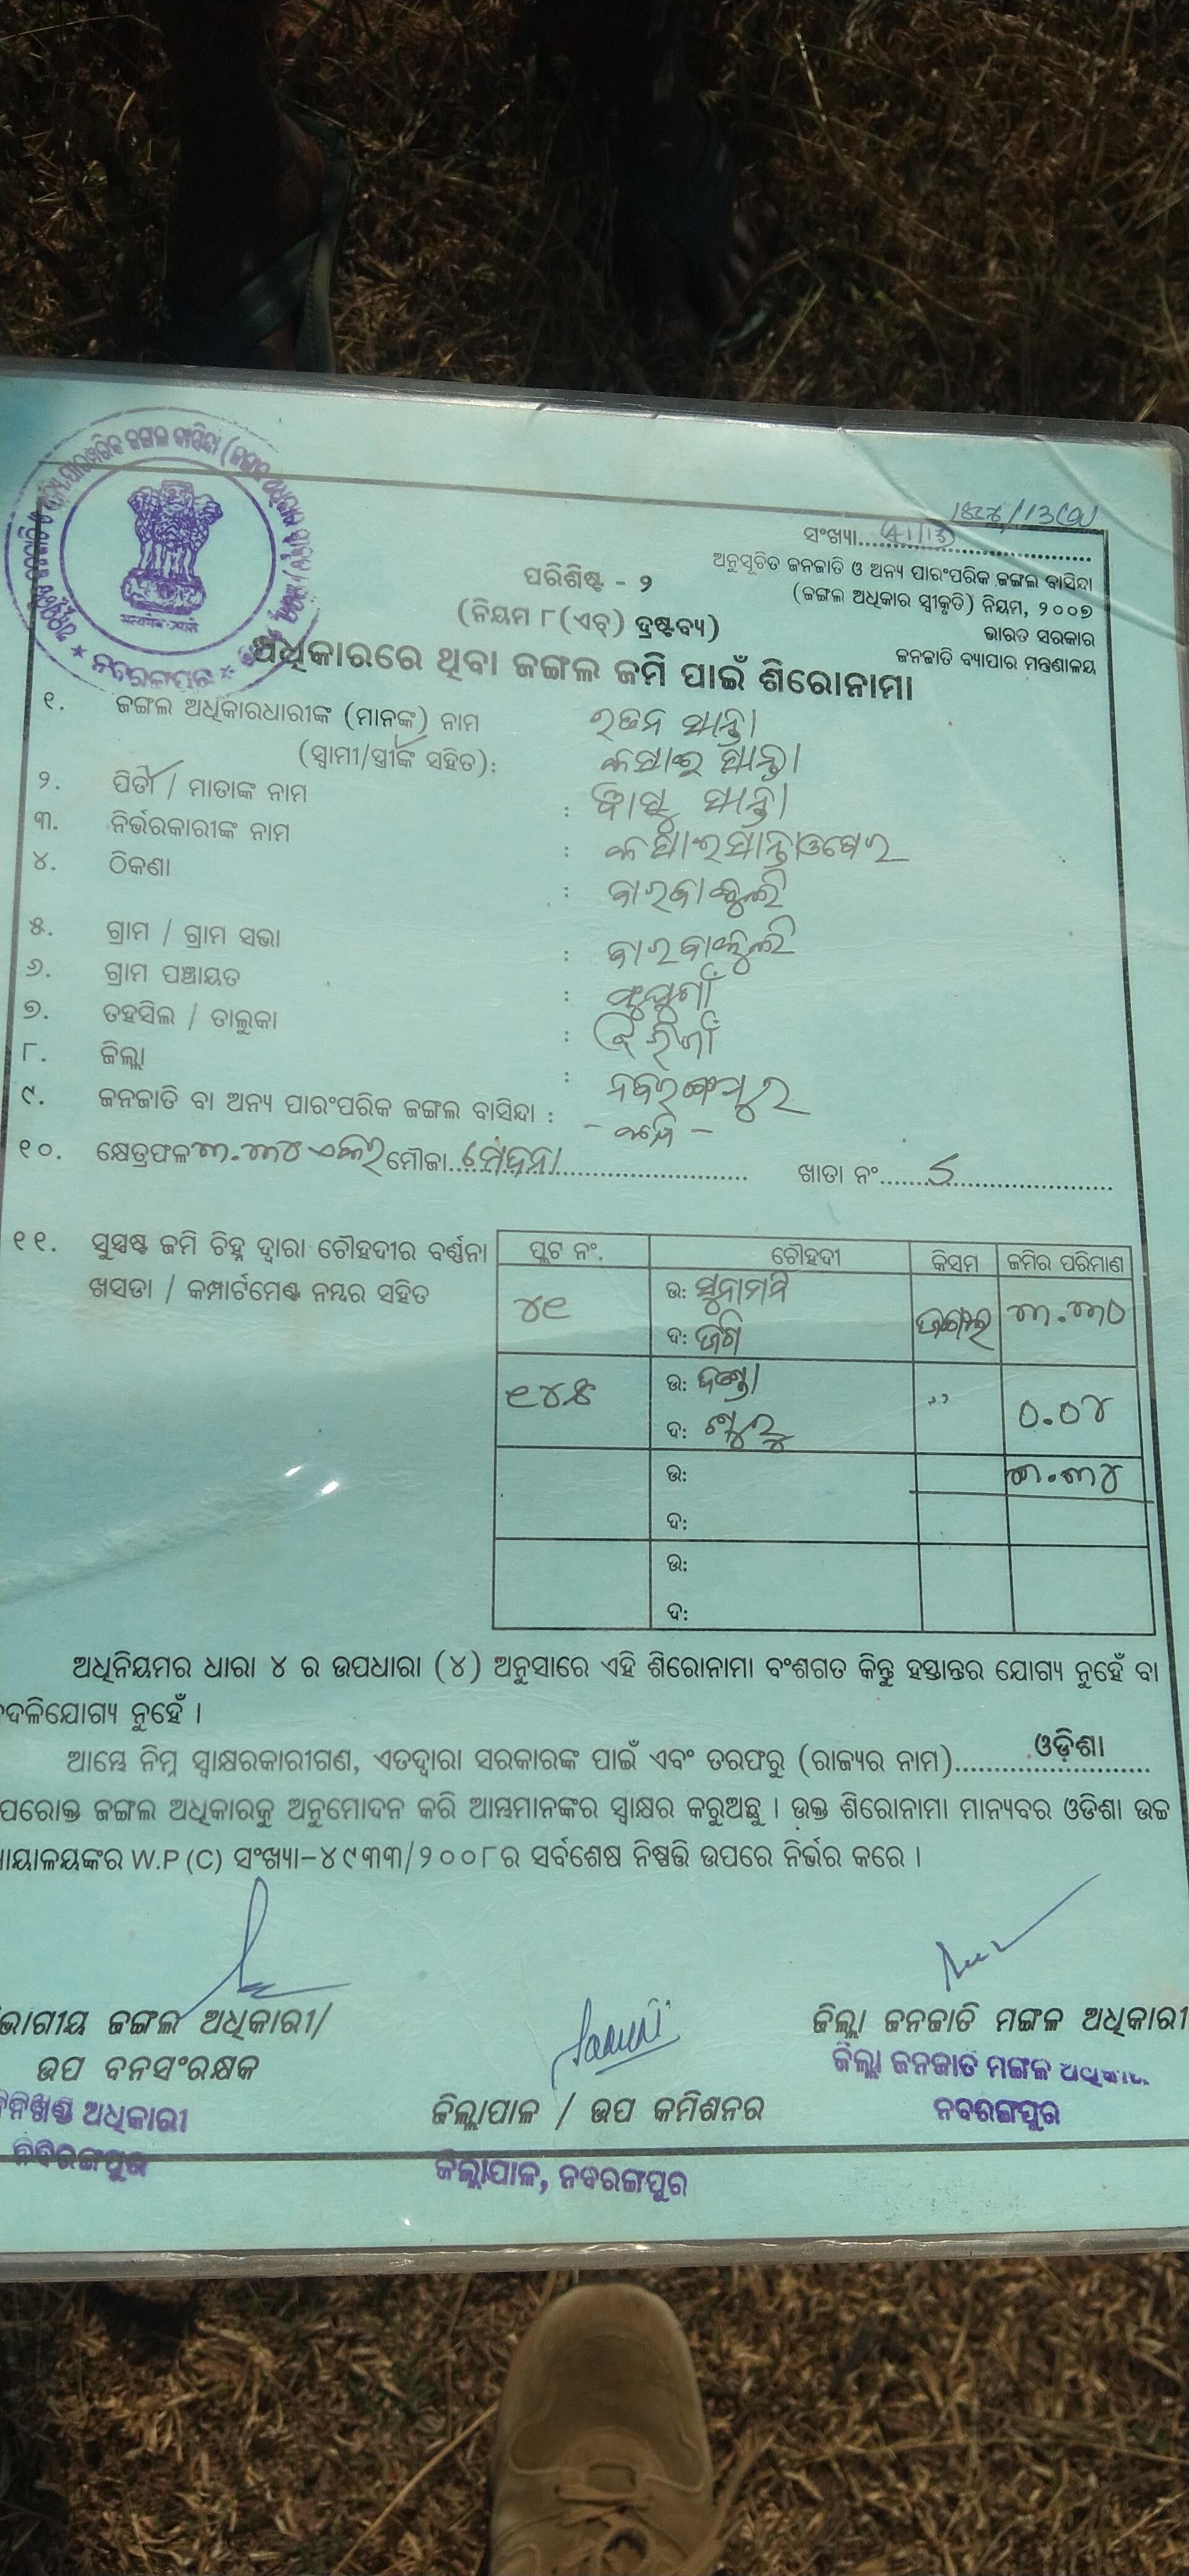 ସଂଖ୍ୟା
ଅନୁସୂଚିତ ଜନଜାତି ଓ ଅନ୍ୟ ପାରଂପରିକ ଜଙ୍ଗଲ ବାସିନ୍ଦା
(ଜଙ୍ଗଲ ଅଧିକାର ସ୍ୱୀକୃତି) ନିୟମ, ୨୦୦୭
ଭାରତ ସରକାର
ଜନଜାତି ବ୍ୟାପାର ମନ୍ତ୍ରଣାଳୟ
ପରିଶିଷ୍ଟ - ୨
(ନିୟମ ୮(ଏଚ୍) ଦ୍ରଷ୍ଟବ୍ୟ)
ଅଧିକାରରେ ଥିବା ଜଙ୍ଗଲ ଜମି ପାଇଁ ଶିରୋନାମା
୧. ଜଙ୍ଗଲ ଅଧିକାରଧାରୀଙ୍କ (ମାନଙ୍କ) ନାମ ରତନ ସାନ୍ତା
(ସ୍ୱାମୀ/ସ୍ତ୍ରୀଙ୍କ ସହିତ): ସାନ୍ତା
୨. ପିତା / ମାତାଙ୍କ ନାମ : ସାନ୍ତା
୩. ନିର୍ଭରକାରୀଙ୍କ ନାମ :
୪. ଠିକଣା :
୫. ଗ୍ରାମ / ଗ୍ରାମ ସଭା :
୬. ଗ୍ରାମ ପଞ୍ଚାୟତ :
୭. ତହସିଲ / ତାଲୁକା : ଝରିଗାଁ
୮. ଜିଲ୍ଲା : ନବରଙ୍ଗପୁର
୯. ଜନଜାତି ବା ଅନ୍ୟ ପାରଂପରିକ ଜଙ୍ଗଲ ବାସିନ୍ଦା :
୧୦. କ୍ଷେତ୍ରଫଳ ୩.୩୪ ଏକର ମୌଜା ମେଦନା ଖାତା ନଂ.
୧୧. ସୁସ୍ପଷ୍ଟ ଜମି ଚିହ୍ନ ଦ୍ୱାରା ଚୌହଦୀର ବର୍ଣ୍ଣନା
ଖସଡା / କମ୍ପାର୍ଟମେଣ୍ଟ ନମ୍ବର ସହିତ
ପ୍ଲଟ ନଂ. ଚୌହଦୀ କିସମ ଜମିର ପରିମାଣ
୪୧ ଉ: ସୁନାମନି ଜଙ୍ଗଲ ୩.୩୦
ଦ: ଜଗି
ଉ: ଦଣ୍ଡା ,, ୦.୦୪
ଦ:
ଉ: ୩.୩୪
ଦ:
ଉ:
ଦ:
ଅଧିନିୟମର ଧାରା ୪ ର ଉପଧାରା (୪) ଅନୁସାରେ ଏହି ଶିରୋନାମା ବଂଶଗତ କିନ୍ତୁ ହସ୍ତାନ୍ତର ଯୋଗ୍ୟ ନୁହେଁ ବା
ବଦଳିଯୋଗ୍ୟ ନୁହେଁ ।
ଆମ୍ଭେ ନିମ୍ନ ସ୍ୱାକ୍ଷରକାରୀଗଣ, ଏତଦ୍ୱାରା ସରକାରଙ୍କ ପାଇଁ ଏବଂ ତରଫରୁ (ରାଜ୍ୟର ନାମ) ଓଡ଼ିଶା
ପରୋକ୍ତ ଜଙ୍ଗଲ ଅଧିକାରକୁ ଅନୁମୋଦନ କରି ଆମ୍ଭମାନଙ୍କର ସ୍ୱାକ୍ଷର କରୁଅଛୁ । ଉକ୍ତ ଶିରୋନାମା ମାନ୍ୟବର ଓଡିଶା ଉଚ୍ଚ
ାୟାଳୟଙ୍କର W.P (C) ସଂଖ୍ୟା-୪୯୩୩/୨୦୦୮ର ସର୍ବଶେଷ ନିଷ୍ପତ୍ତି ଉପରେ ନିର୍ଭର କରେ ।
ଭାଗୀୟ ଜଙ୍ଗଲ ଅଧିକାରୀ/
ଉପ ବନସଂରକ୍ଷକ
ବନଖଣ୍ଡ ଅଧିକାରୀ
ନବରଙ୍ଗପୁର
ଜିଲ୍ଲାପାଳ / ଉପ କମିଶନର
ଜିଲ୍ଲାପାଳ, ନବରଙ୍ଗପୁର
ଜିଲ୍ଲା ଜନଜାତି ମଙ୍ଗଳ ଅଧିକାରୀ
ଜିଲ୍ଲା ଜନଜାତି ମଙ୍ଗଳ ଅଧିକାରୀ
ନବରଙ୍ଗପୁର